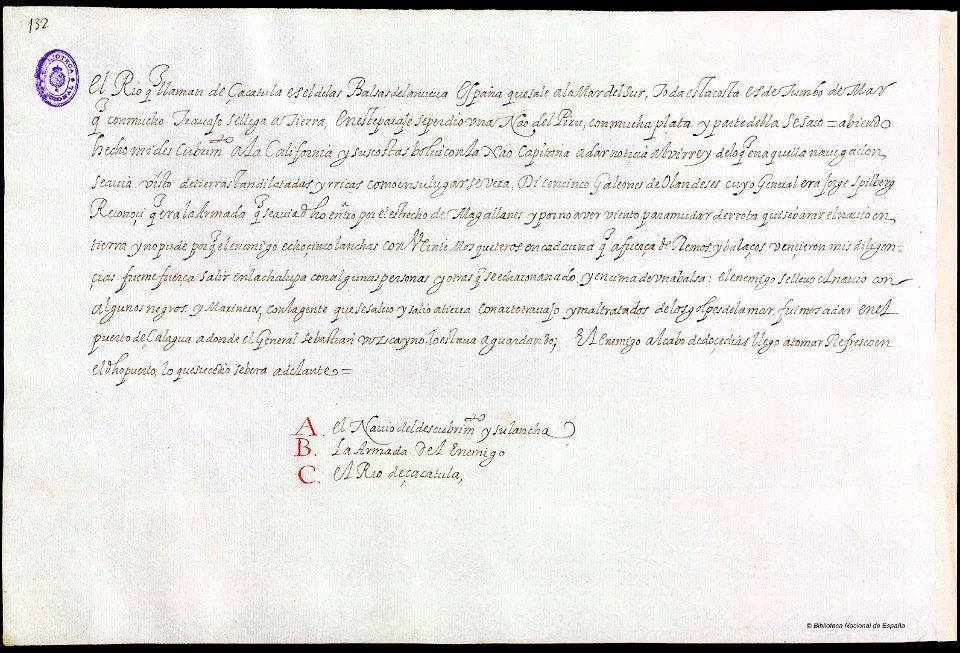 132
BIBLIOTECA
El Rio q̃ llaman de Çacatula es el de las Balsas de la nueva España que sale a la Mar del Sur, Toda esta costa es de Tumbo de Mar
q̃ con mucho Travajo se llega a Tierra, En este paraje se perdio una Nao del Piru, con mucha plata y parte della se saco = abiendo
hecho mi descubrim.to a la California y sus costas bolui con la Nao Capitana a dar noticia al virrey de lo q̃ en aquella navegacion
se auia visto de tierras tan dilatadas y rricas como en su lugar se vera, Di con cinco Galeones de Olandeses cuyo General era Jorge Spilberg
Reconoçi q̃ era la Armada q̃ se auia dho entro por el estrecho de Magallanes y por no aver viento para mudar derrota quise barar el nauio en
tierra y no pude porq̃ el enemigo echo çinco lanchas con Veinte Mosqueteros en cada una q̃ a fuerça de Remos y balaços vençieron mis diligen-
çias. fueme fuerça salir en la chalupa con algunas personas y otras q̃ se echaron a nado, y encima de una balsa: el enemigo se lleuo el nauio con
algunos negros y Marineros, con la gente que se saluo y salio a tierra con arto travajo y maltratados de los golpes de la mar, fuimos a dar en el
puerto de Çalagua a donde el General Sebastian Vizcayno lo estava aguardando; El Enemigo al cabo de doçe dias llego a tomar Refresco en
el dho puerto, lo que sucedio se bera adelante =
A. el Nauio del descubrim.to y su lancha
B. La Armada del Enemigo
C. el Rio de çacatula,
© Biblioteca Nacional de España